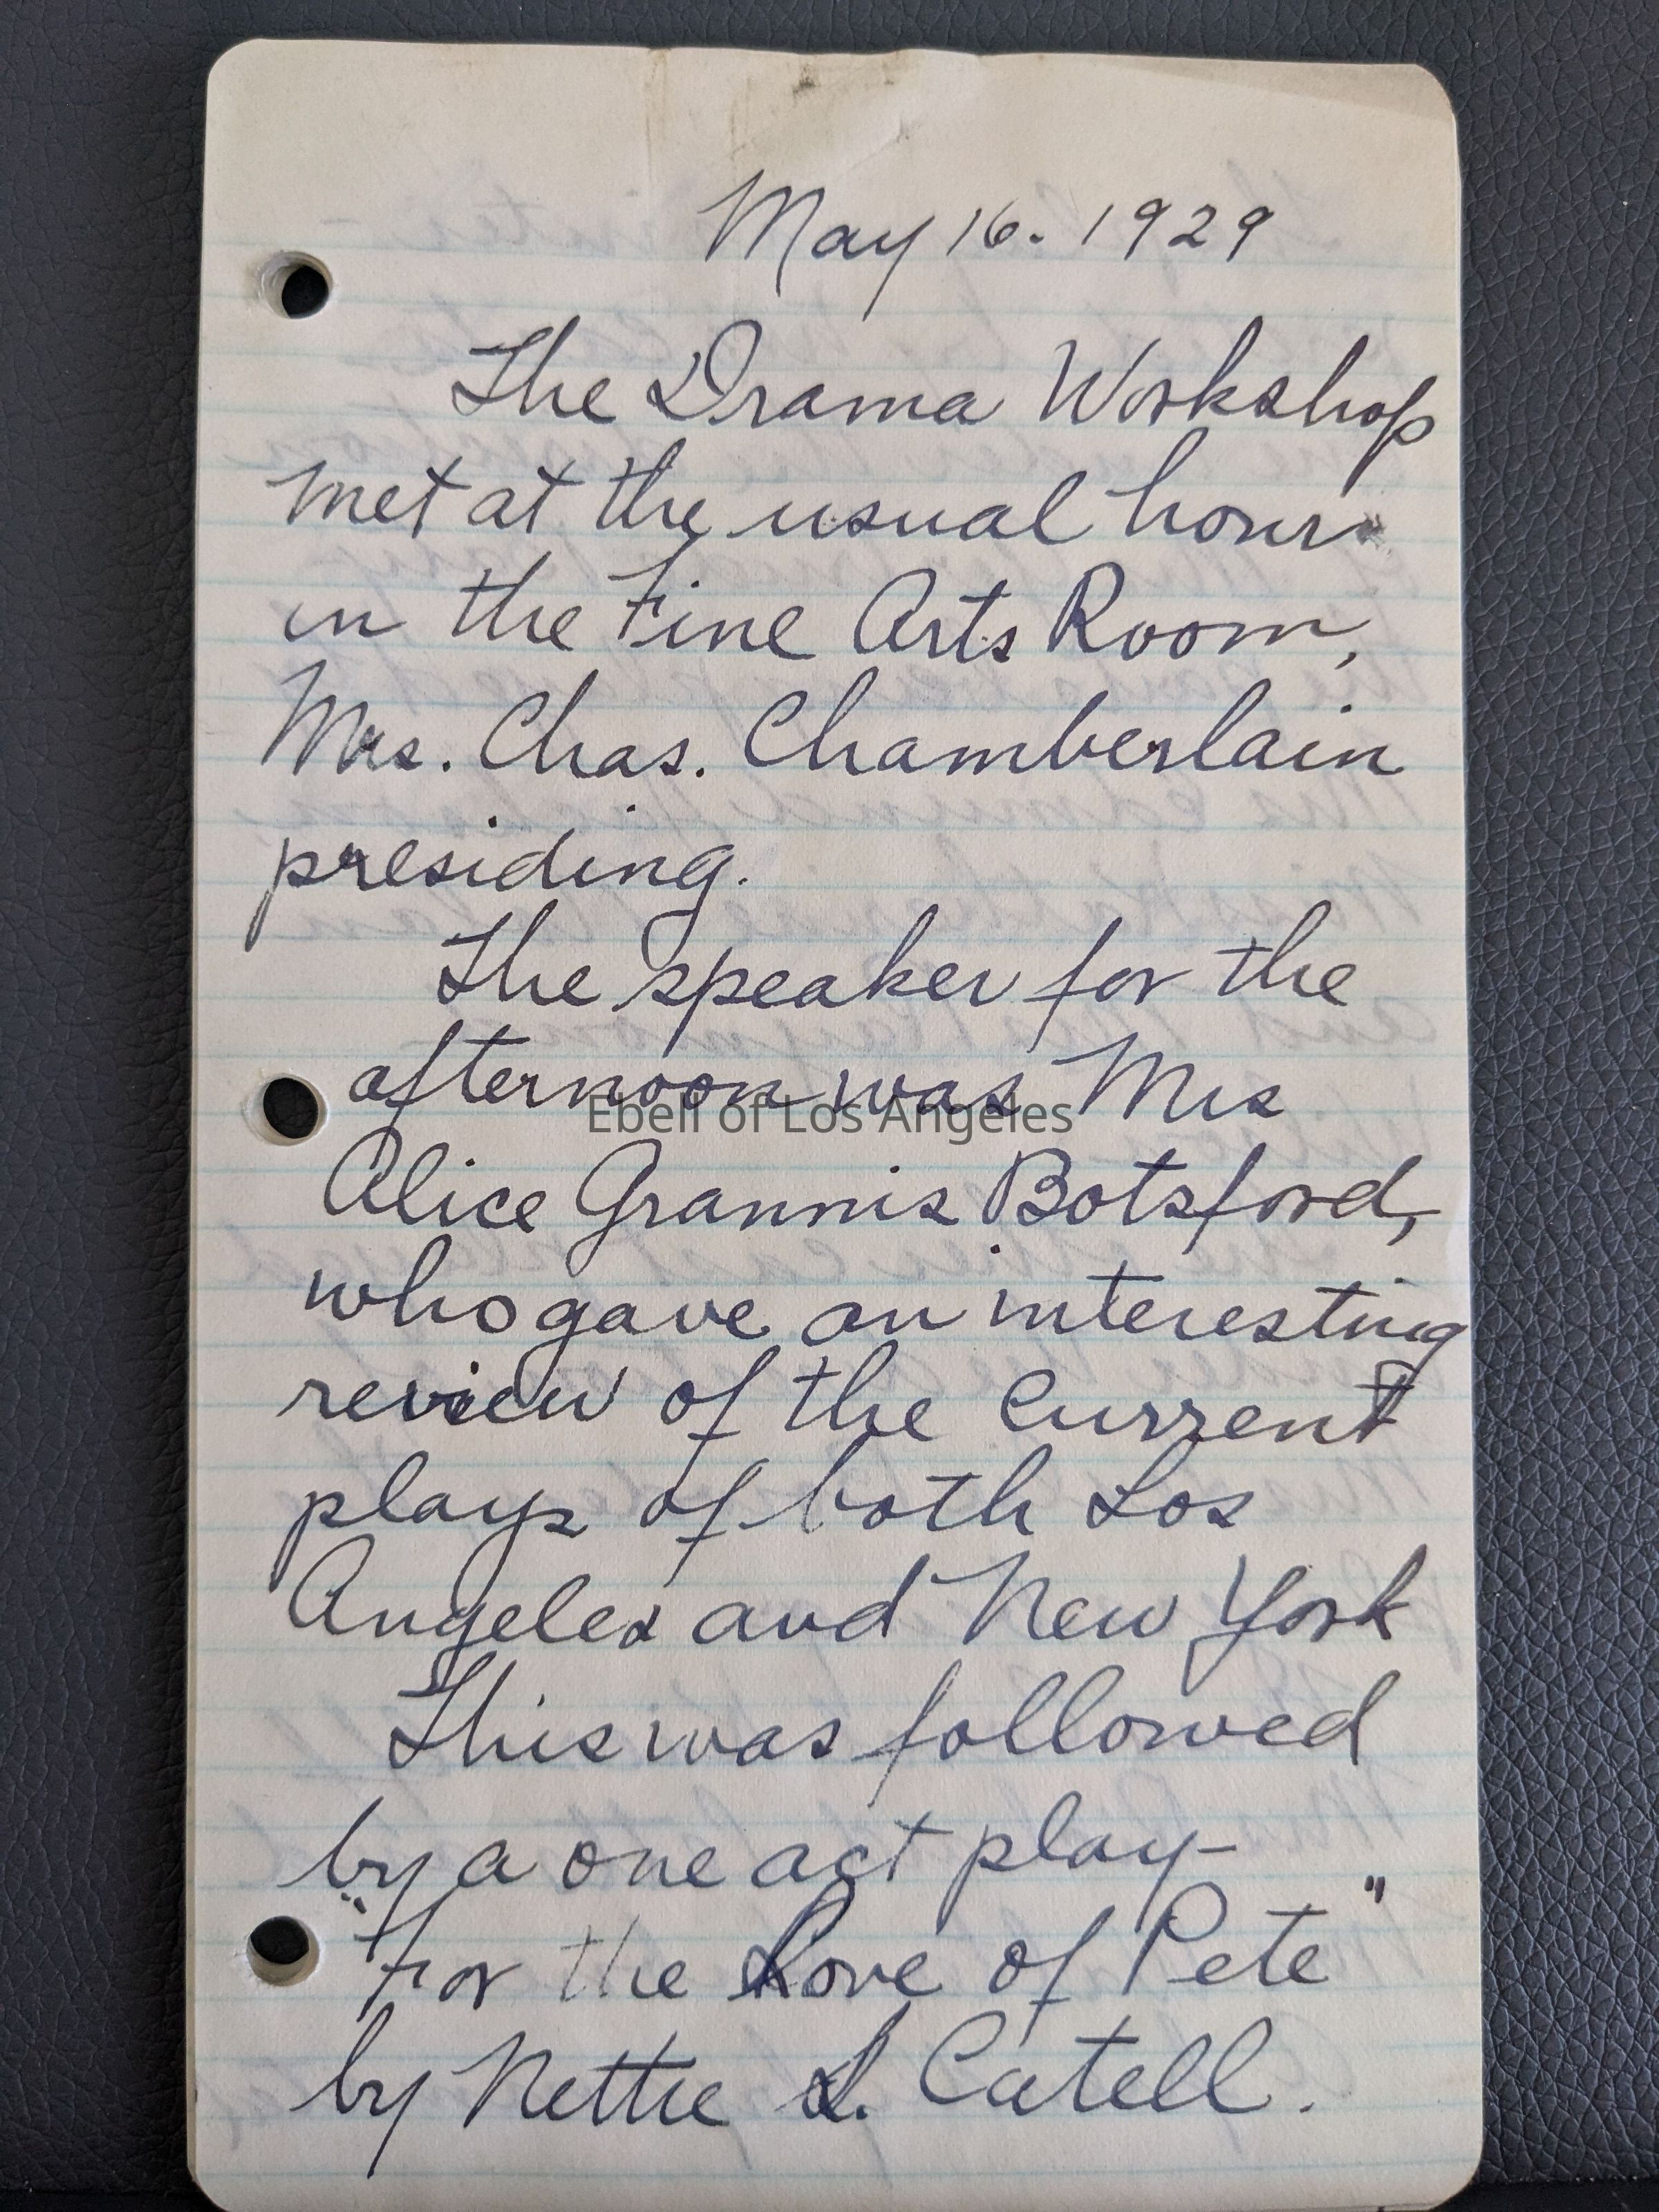 May 16. 1929
The Drama Workshop
met at the usual hour
in the Fine Arts Room,
Mrs. Chas. Chamberlain
presiding.
The speaker for the
afternoon was Mrs
Ebell of Los Angeles
Alice Grannis Botsford,
who gave an interesting
review of the current
plays of both Los
Angeles and New York
This was followed
by a one act play-
"For the Love of Pete"
by Nettie L. Catell.